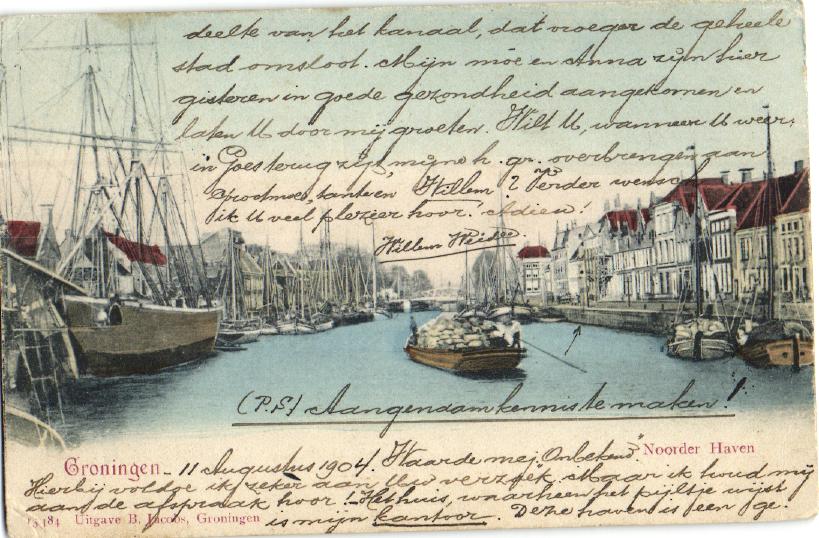 deelte van het kanaal, dat vroeger de geheele
stad omsloot. Mijn moe en Anna zijn hier
gisteren in goede gezondheid aangekomen en
laten U door mij groeten. Wilt U, wanneer U weer
in Goes terug zijt, mijne h. gr. overbrengen aan
Grootmoe, tante en Willem? Verder wensch
ik U veel plezier hoor! Adieu!
Willem
(P.S.) Aangenaam kennis te maken!
Noorder Haven
Groningen 11 Augustus 1904. Waarde mej. "Onbekend"
Hierbij voldoe ik zeker aan Uw verzoek. Maar ik houd mij
aan de afspraak hoor! Het huis, waarheen het pijltje wijst
is mijn kantoor. Deze haven is een ge-
Uitgave B. Jacobs, Groningen